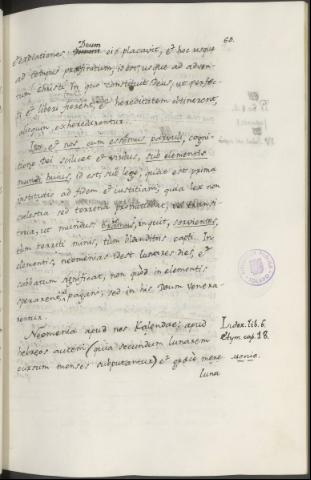 60.
expiationes Deum eis placavit, et hoc usque
ad tempus præfinitum, id est, usque ad adven-
tum Christi in quo constituit Deus, ut perfe-
cti et liberi heredes et hereditatem obtinerent,
aliquem exheredirentur.
Ita et nos cum essemus parvuli, cogni-
tione Dei scilicet et viribus, sub elementis
mundi huius, id est, sub lege, quae est prima
institutio ad fidem et iustitiam; quia lex non
caelestia sed terrena promittebat, vel transi-
toria, ut mundus. Eramus, inquit, servientes,
tum territi minis, tum blanditiis capti. In
elementis, neomenias idest lunares dies, et
sabbatum significat, non quod in elementis
sperarent, ut pagani; sed in his Deum venera
rentur.
Neomenia apud nos Kalendae; apud
hebreos autem (quia secundum lunarem
cursum menses subputantur) et grece mene
luna
Index. lib. 6.
Etym. cap. 18.